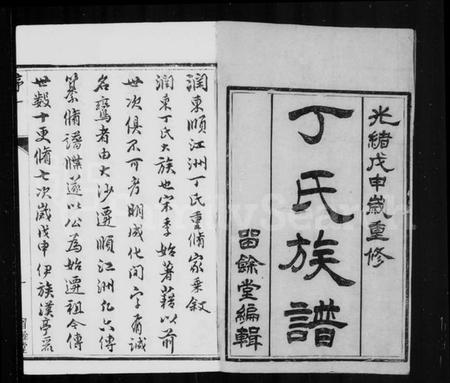 光緒戊申歲重修
丁氏族譜
留餘堂編輯
潤東順江洲丁氏重脩家乗敘
潤東丁氏大族也宋季始著藉以前
世次俱不可考明成化间字有誠
名鸞者由大沙遷順江洲凡六傳
纂脩譜牒遂以公為始遷祖今傳
世數十更脩七次歲戊申伊族漢亭
序一